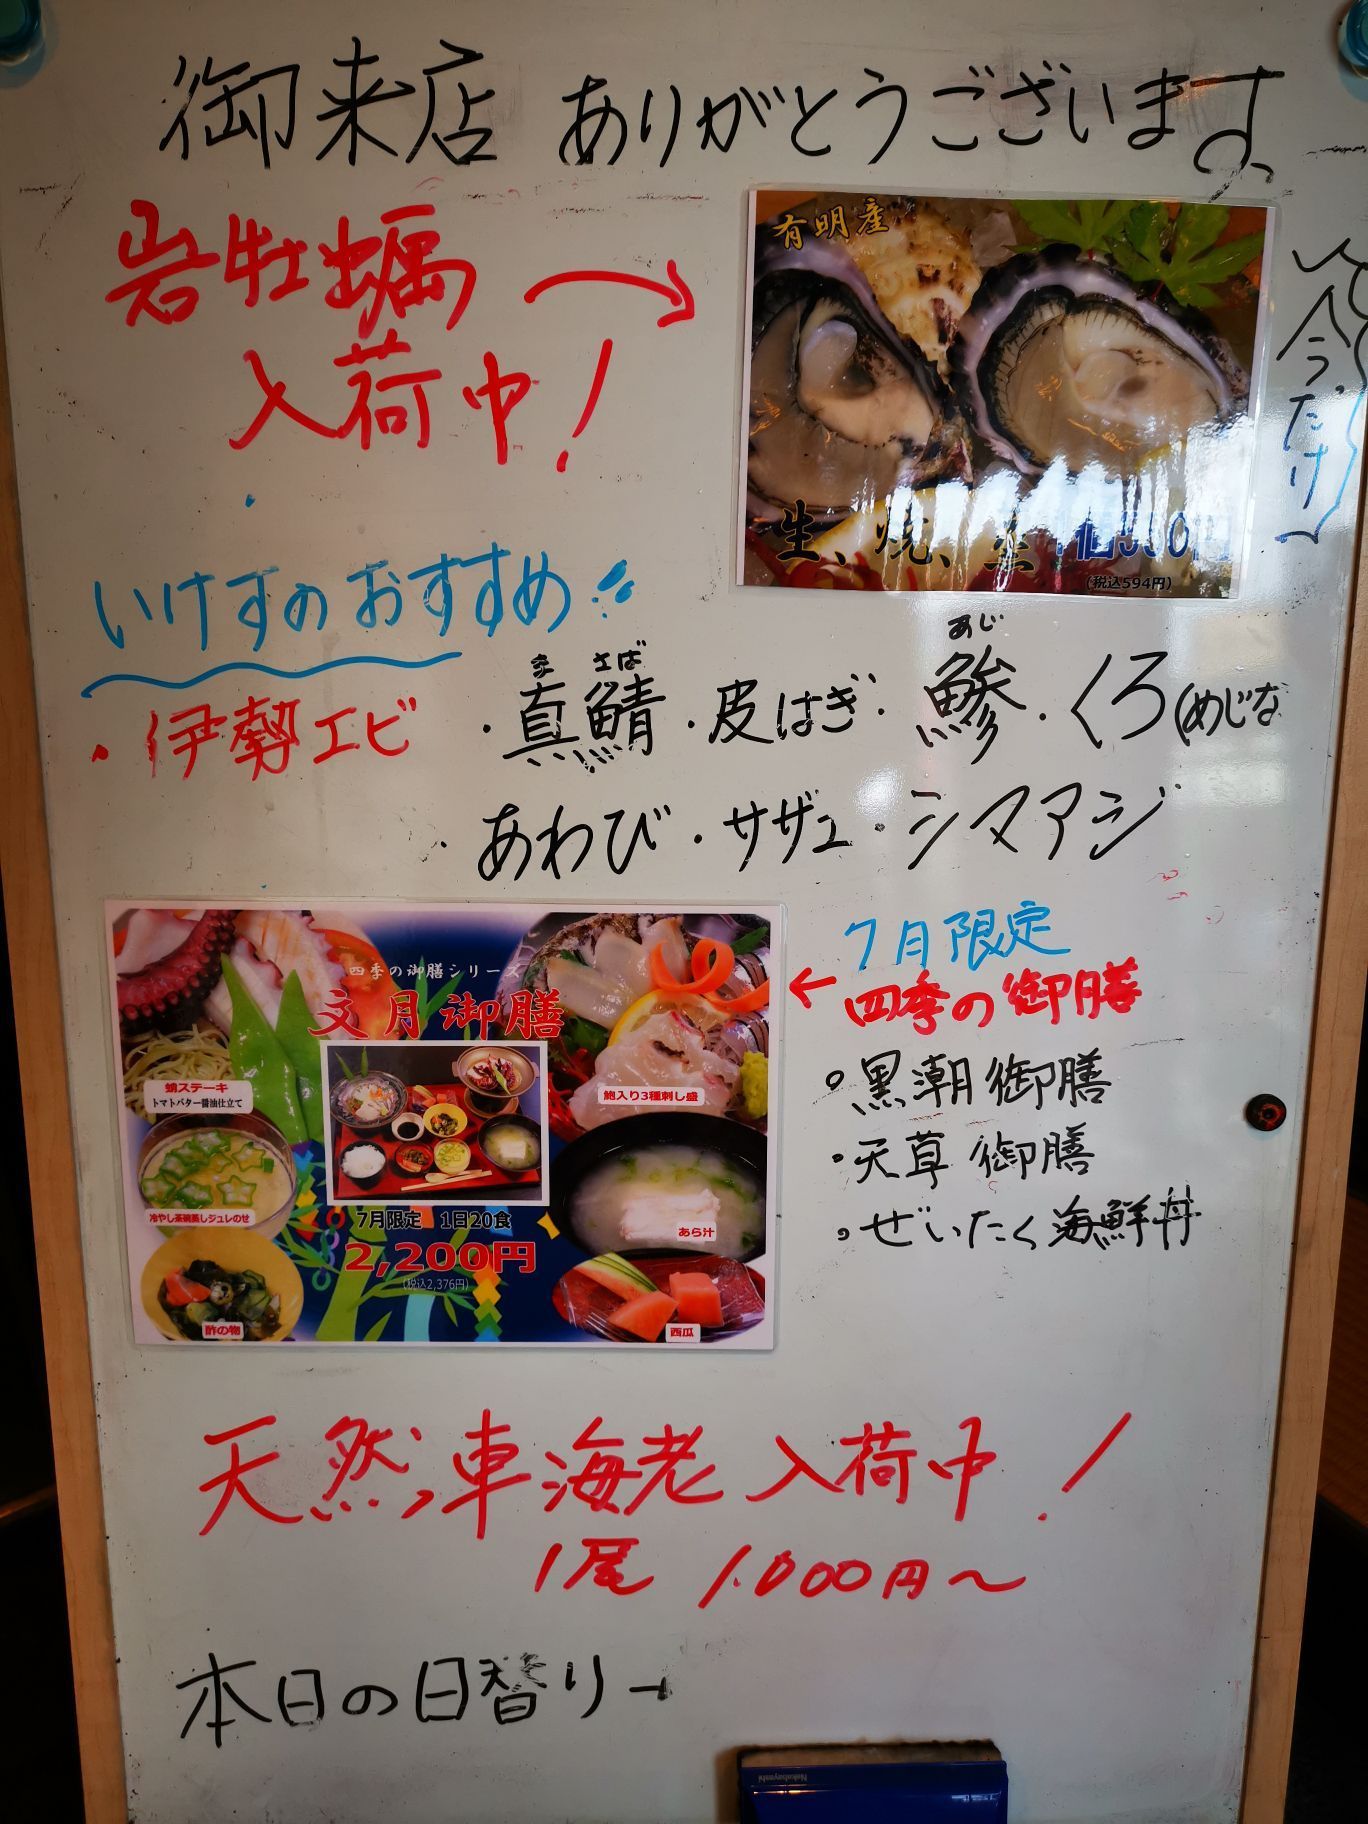 御来店 ありがとうございます
岩牡蠣
入荷中!
有明産
生、焼、蒸 1個550円
(税込594円)
今だけ
いけすのおすすめ!!
・伊勢エビ ・真鯖・皮はぎ・鯵・くろ(めじな
ま さば あじ
・あわび・サザエ・シマアジ
四季の御膳シリーズ
文月御膳
蛸ステーキ
トマトバター醤油仕立て
鮑入り3種刺し盛
冷やし茶碗蒸しジュレのせ
あら汁
7月限定 1日20食
2,200円
(税込2,376円)
酢の物
西瓜
7月限定
←四季の御膳
・黒潮御膳
・天草御膳
・ぜいたく海鮮丼
天然車海老入荷中!
1尾 1.000円〜
本日の日替り→
Nakabayashi